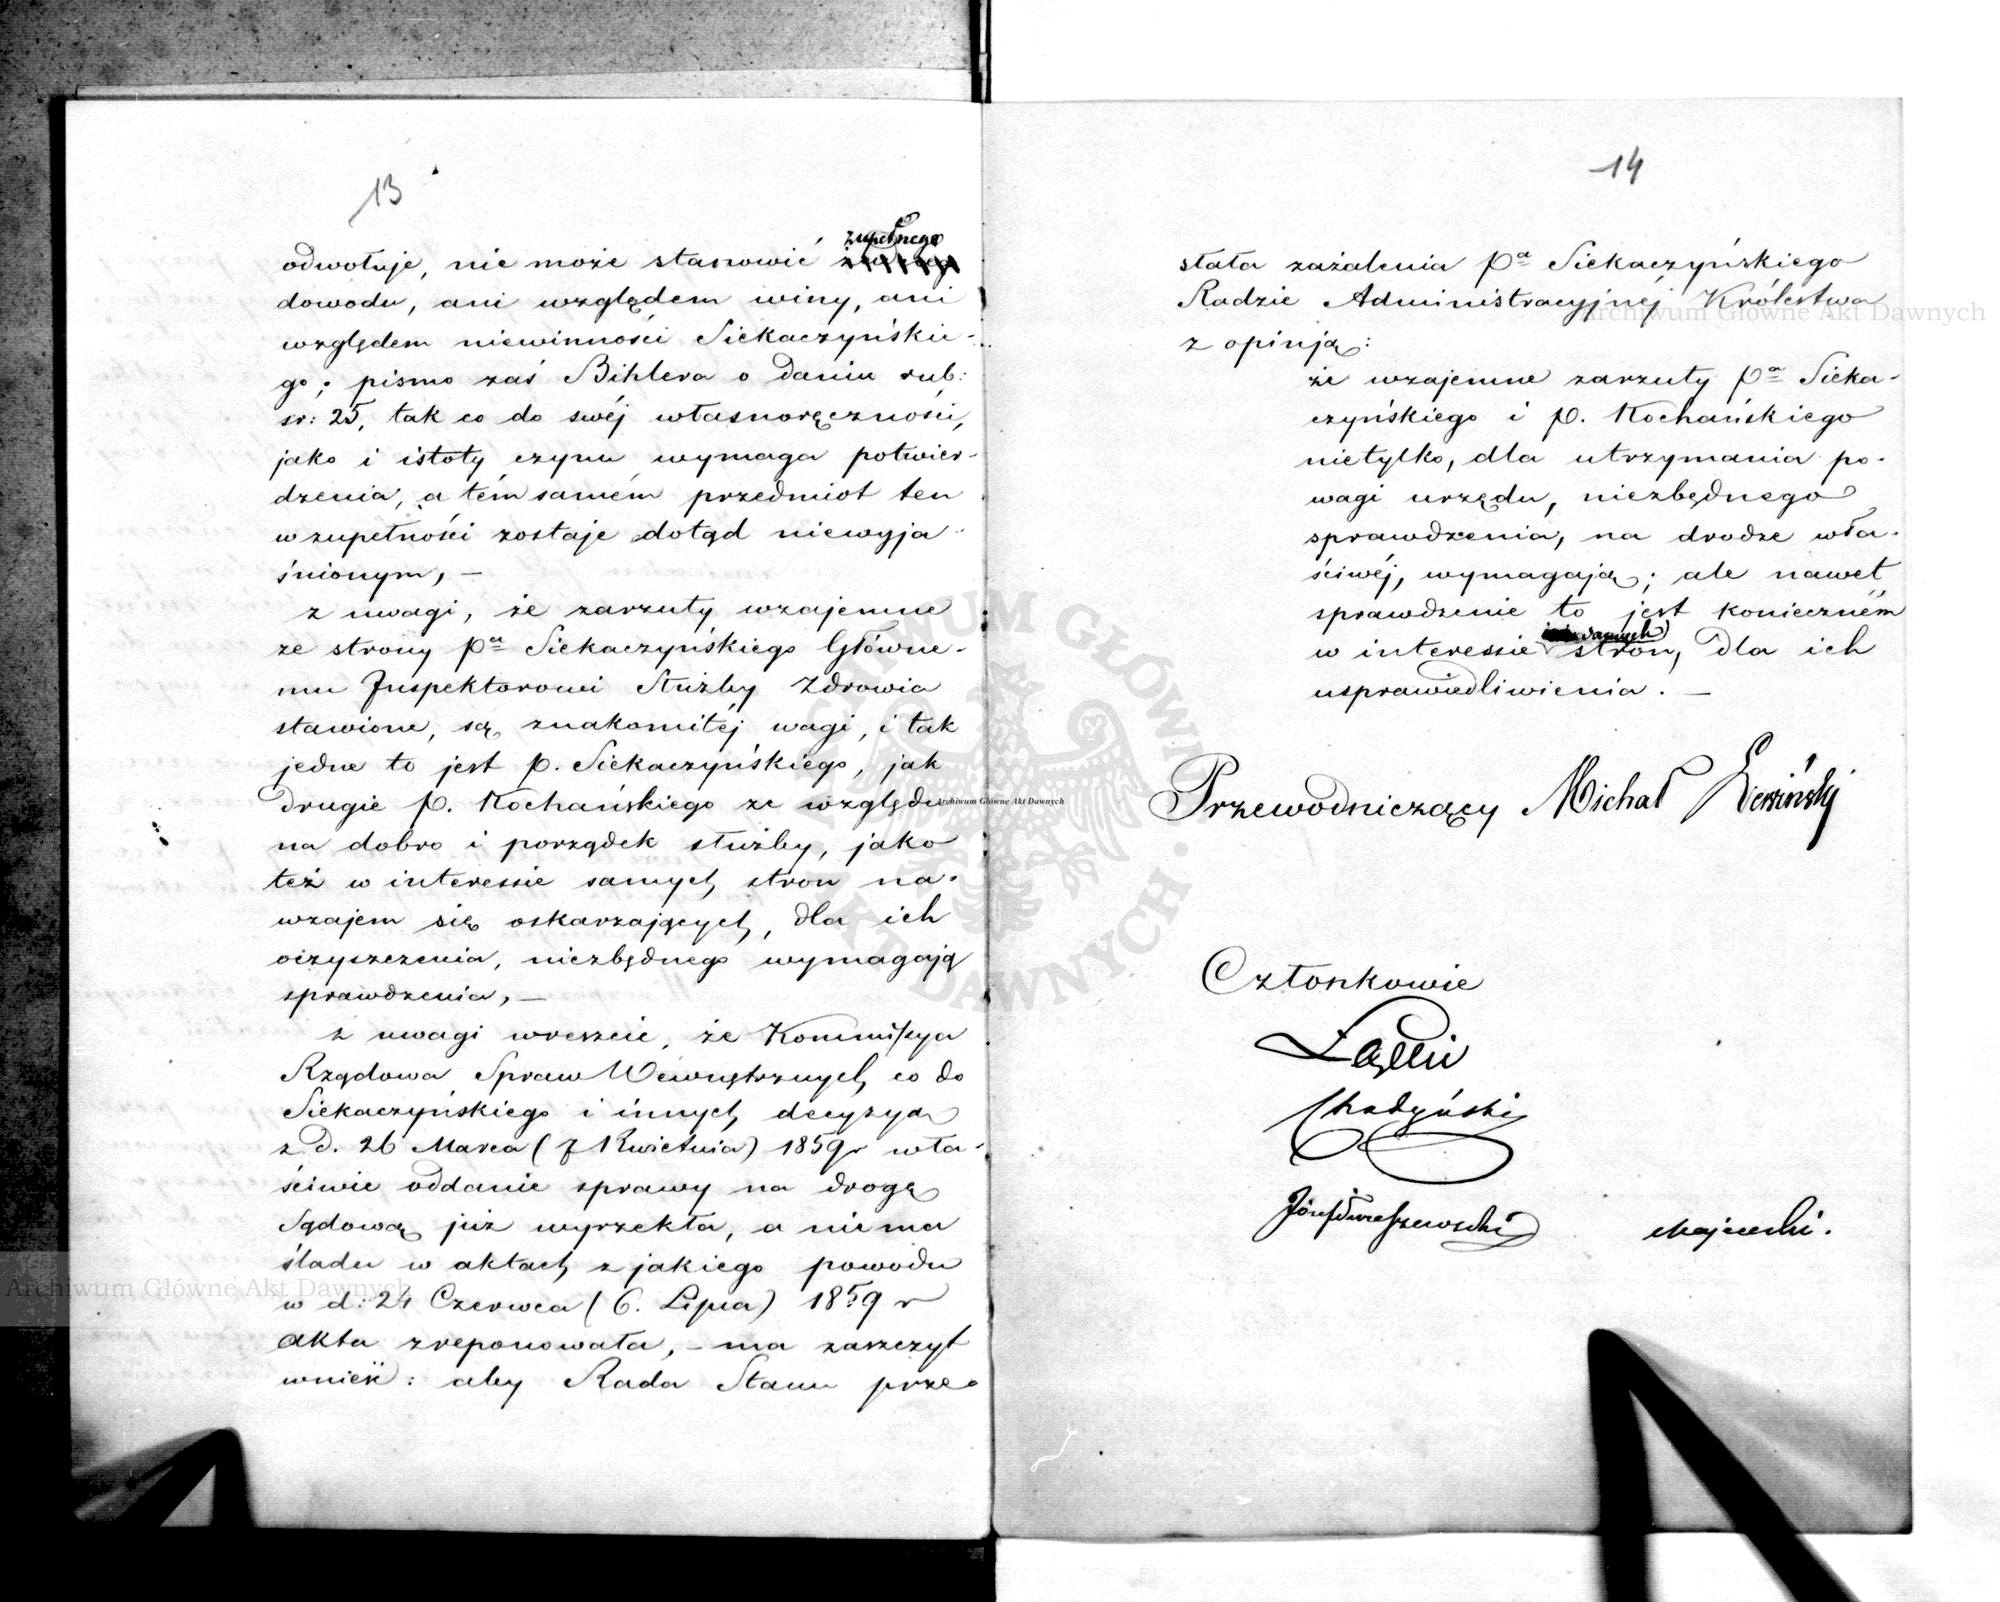 13
odwołuje, nie może stanowić zupełnego
dowodu, ani względem winy, ani
względem niewinności Siekaczyńskie-
go; pismo zaś Bihlera o daniu rub:
sr: 25, tak co do swéj własnoręczności,
jako i istoty czynu wymaga potwier-
dzenia, a tém samém przedmiot ten
w zupełności zostaje dotąd niewyja-
śnionym, —
z uwagi, że zarzuty wzajemne
ze strony pa Siekaczyńskiego Główne-
mu Inspektorowi Służby Zdrowia
stawione, są znakomitéj wagi, i tak
jedne to jest p. Siekaczyńskiego, jak
drugie p. Kochańskiego ze względu
na dobro i porządek służby, jako
też w interessie samych stron na-
wzajem się oskarżających, dla ich
oczyszczenia, niezbędnego wymagają
sprawdzenia, —
z uwagi wreszcie, że Kommissya
Rządowa Spraw Wewnętrznych co do
Siekaczyńskiego i innych decyzyą
z d. 26 Marca (7 Kwietnia) 1859 r wła-
ściwie oddanie sprawy na drogę
Sądową już wyrzekła, a nie ma
śladu w aktach z jakiego powodu
w d: 24 Czerwca (6. Lipca) 1859 r
akta zreponowała, – ma zaszczyt
wnieść: aby Rada Stanu prze-
14
słała zażalenia pa Siekaczyńskiego
Radzie Administracyjnéj Królestwa
z opinją:
że wzajemne zarzuty pa Sieka-
czyńskiego i p. Kochańskiego
nietylko, dla utrzymania po-
wagi urzędu, niezbędnego
sprawdzenia, na drodze wła-
ściwéj, wymagają; ale nawet
sprawdzenie to jest konieczném
w interessie samych stron, dla ich
usprawiedliwienia. —
Przewodniczący Michał
Członkowie
Chodyński
Józef
Majewski.
Archiwum Główne Akt Dawnych
Archiwum Główne Akt Dawnych
Archiwum Główne Akt Dawnych
ARCHIWUM GŁÓWNE AKT DAWNYCH